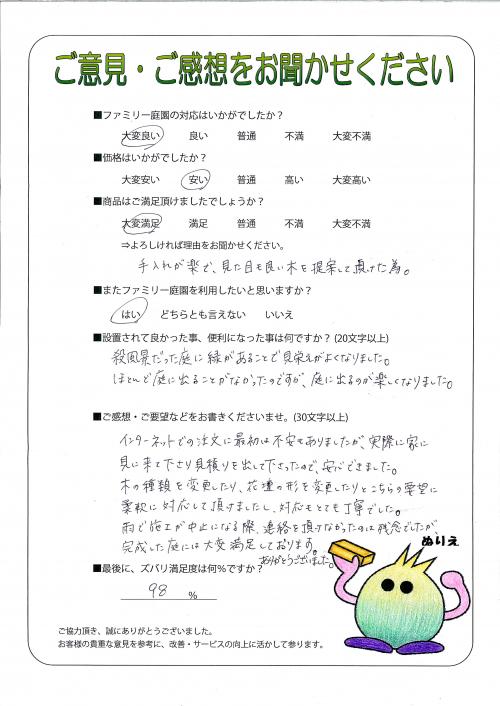 ご意見・ご感想をお聞かせください
■ファミリー庭園の対応はいかがでしたか？
大変良い　良い　普通　不満　大変不満
■価格はいかがでしたか？
大変安い　安い　普通　高い　大変高い
■商品はご満足頂けましたでしょうか？
大変満足　満足　普通　不満　大変不満
⇒よろしければ理由をお聞かせください。
手入れが楽で、見た目も良い木を提案して頂けた為。
■またファミリー庭園を利用したいと思いますか？
はい　どちらとも言えない　いいえ
■設置されて良かった事、便利になった事は何ですか？(20文字以上)
殺風景だった庭に緑があることで見栄えがよくなりました。
ほとんど庭に出ることがなかったのですが、庭に出るのが楽しくなりました。
■ご感想・ご要望などをお書きくださいませ。(30文字以上)
インターネットでの注文に最初は不安もありましたが、実際に家に
見に来て下さり見積りを出して下さったので、安心できました。
木の種類を変更したり、花壇の形を変更したりとこちらの要望に
柔軟に対応して頂けましたし、対応もとても丁寧でした。
雨で施工が中止になる際、連絡を頂けなかったのは残念でしたが、
完成した庭には大変満足しております。
ありがとうございました。
ぬりえ
■最後に、ズバリ満足度は何％ですか？
98 %
ご協力頂き、誠にありがとうございました。
お客様の貴重な意見を参考に、改善・サービスの向上に活かして参ります。